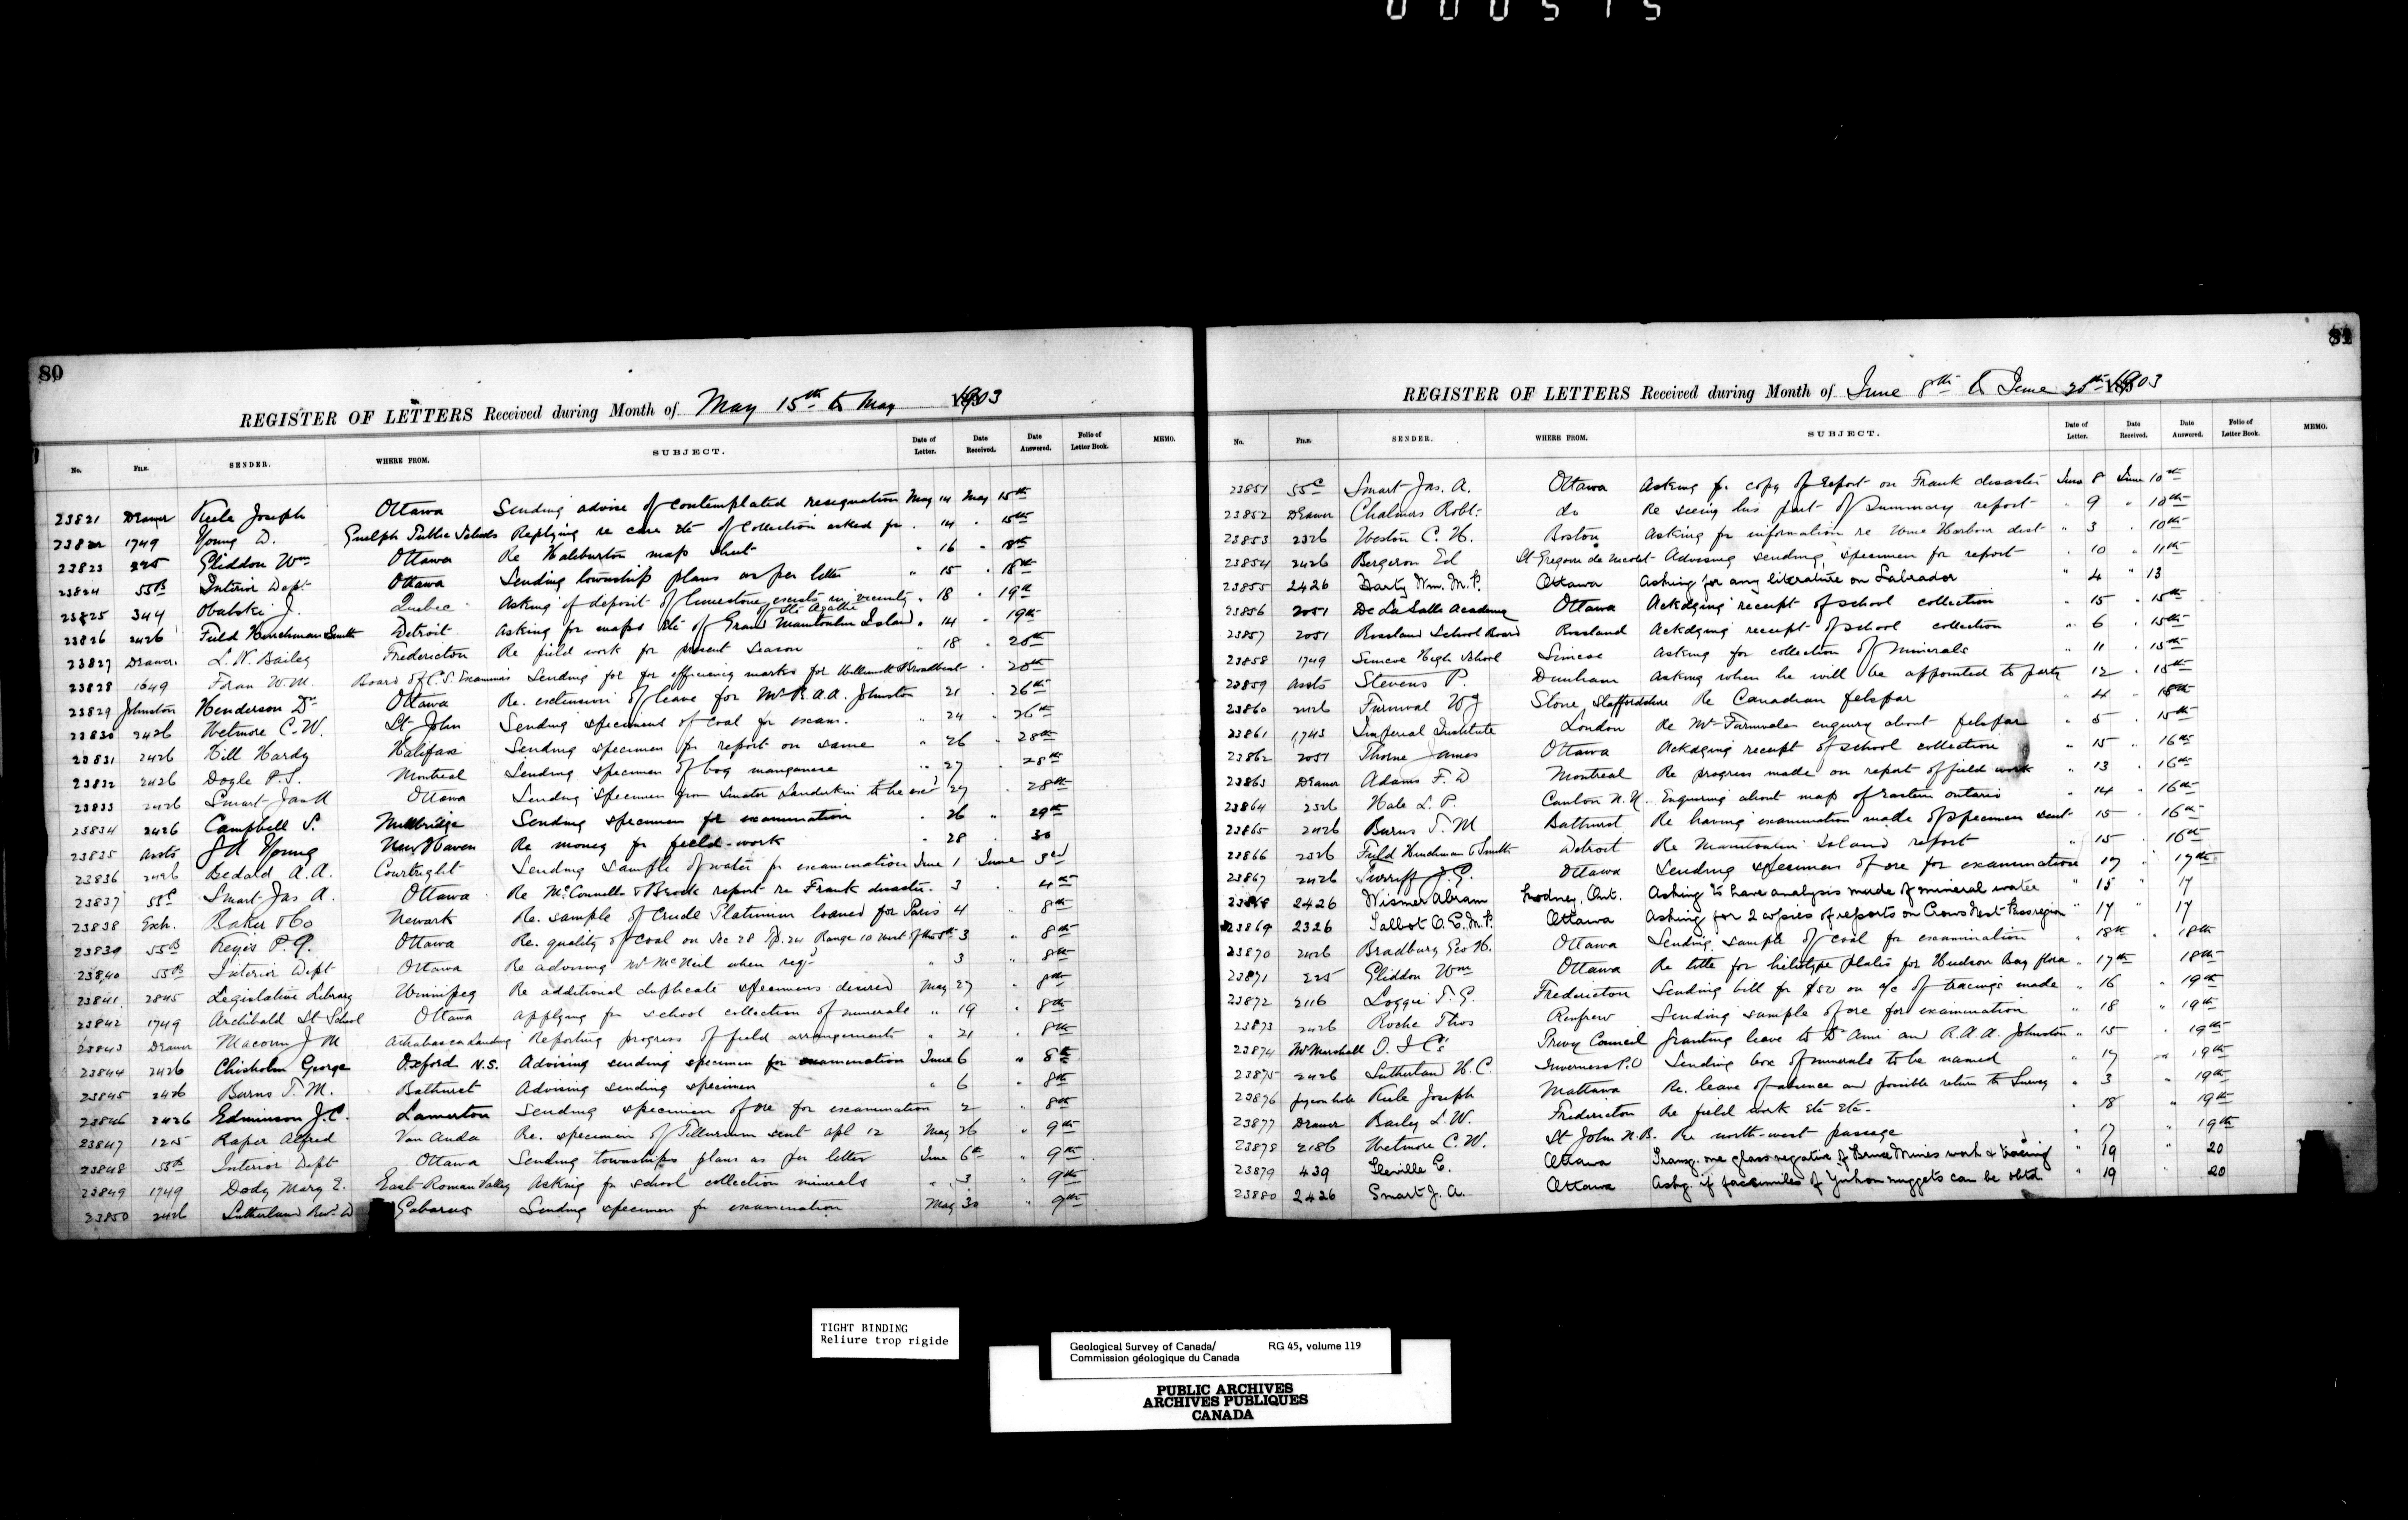 000515
80
REGISTER OF LETTERS Received during Month of May 15th to May 1903
No. FILE. SENDER. WHERE FROM. SUBJECT. Date of Letter. Date Received. Date Answered. Folio of Letter Book. MEMO.
23821 Drawer Keele Joseph Ottawa Sending advise of contemplated resignation May 14 May 15th
23822 1749 Young D. Guelph Public Schools Replying re care etc of collection asked for " 14 " 15th
23823 225 Gliddon Wm Ottawa Re Haliburton map sheet " 16 " 18th
23824 55B Interior Dept Ottawa Sending township plans as per letter " 15 " 18th
23825 344 Obalski J. Quebec Asking if deposit of limestone exists in vicinity of Ste Agathe " 18 " 19th
23826 2426 Field Henchman Smith Detroit Asking for maps etc of Grand Manitoulin Island " 14 " 19th
23827 Drawer. L. W. Bailey Fredericton Re field work for present season " 18 " 20th
23828 1649 Foran W.M. Board of C.S. Examiners Sending for for efficiency marks for Willimott & Broadbent " 20th
23829 Johnston Henderson Dr Ottawa Re. extension of leave for Mr R.A.A. Johnston 21 " 26th
23830 2426 Wetmore C.W. St John Sending specimens of coal for exam. " 24 " 26th
23831 2426 Hill Hardy Halifax Sending specimen for report on same " 26 " 28th
23832 2426 Doyle P.S. Montreal Sending specimen of bog manganese " 27 " 28th
23833 2426 Smart Jas A Ottawa Sending specimen from Senator Landerkin to be exd 27 " 28th
23834 2426 Campbell S. Millbridge Sending specimen for examination " 26 " 29th
23835 Assts J A Young New Haven Re money for field-work " 28 30
23836 2426 Bedard A.A. Courtright Sending sample of water for examination June 1 June 3rd
23837 55C Smart Jas A. Ottawa Re McConnell & Brock report re Frank disaster. 3 " 4th
23838 Exh. Baker & Co Newark Re. sample of Crude Platinum loaned for Paris 4 " 8th
23839 55B Keyes P.G. Ottawa Re. quality of coal on Sec 28 Tp. 24 Range 10 West of the 5th 3 " 8th
23840 55B Interior Dept Ottawa Re advising Mr McNeil when reqd " 3 " 8th
23841 2845 Legislative Library Winnipeg Re additional duplicate specimens desired May 27 " 8th
23842 1749 Archibald St School Ottawa Applying for school collection of minerals " 19 " 8th
23843 Drawer Macoun J M Athabasca Landing Reporting progress of field arrangements " 21 " 8th
23844 2426 Chisholm George Oxford N.S. Advising sending specimen for examination June 6 " 8th
23845 2426 Burns T. M. Bathurst Advising sending specimen " 6 " 8th
23846 2426 Edminson J.C. Lamerton Sending specimen of ore for examination 2 " 8th
23847 1215 Raper Alfred Van Anda Re. specimen of Tellurium sent apl 12 May 26 " 9th
23848 55B Interior Dept Ottawa Sending townships plans as per letter June 6th " 9th
23849 1749 Dody Mary E. East Roman Valley Asking for school collection minerals " 3. " 9th
23850 2426 Sutherland Revd D Gabarus Sending specimen for examination May 30 " 9th
81
REGISTER OF LETTERS Received during Month of June 8th to June 20th 1903
No. FILE. SENDER. WHERE FROM. SUBJECT. Date of Letter. Date Received. Date Answered. Folio of Letter Book. MEMO.
23851 55C Smart Jas. A. Ottawa Asking for copy of report on Frank disaster June 8 June 10th
23852 Drawer Chalmers Robt. do Re seeing his part of Summary report " 9 " 10th
23853 2326 Weston C. H. Boston Asking for information re Wine Harbour dist " 3 " 10th
23854 2426 Bergeron Ed St Gregoire de Nicolet Advising sending specimen for report " 10 " 11th
23855 2426 Harty Wm. M.P. Ottawa Asking for any literature on Labrador " 4 " 13
23856 2051 De La Salle Academy Ottawa Ackdging receipt of school collection " 15 " 15th
23857 2051 Rossland School Board Rossland Ackdging receipt of school collection " 6 " 15th
23858 1749 Simcoe High School Simcoe Asking for collection of minerals " 11 " 15th
23859 Assts Stevens P. Dunham Asking when he will be appointed to party 12 " 15th
23860 2426 Furnival W J Stone, Staffordshire Re Canadian felspar " 4 " 15th
23861 1743 Imperial Institute London Re Mr Furnivals enquiry about felspar " 5 " 15th
23862 2051 Thorne James Ottawa Ackdging receipt of school collection " 15 " 16th
23863 Drawer Adams F. D Montreal Re progress made on report of field work " 13 " 16th
23864 2326 Hale L. P. Canton N.Y. Enquiring about map of Eastern Ontario " 14 " 16th
23865 2426 Burns T. M Bathurst Re having examination made of specimen sent 15 " 16th
23866 2326 Field Henchman & Smith Detroit Re Manitoulin Island report " 15 " 16th
23867 2426 Turriff J.G. Ottawa Sending specimen of ore for examination 17 " 17th
23868 2426 Wismer Abram Rodney, Ont. Asking to have analysis made of mineral water " 15 " 17
23869 2326 Talbot O. E. M.P. Ottawa Asking for 2 copies of reports on Crows Nest Pass region " 17 " 17
23870 2426 Bradbury Geo H. Ottawa Sending sample of coal for examination " 18th " 18th
23871 225 Gliddon Wm Ottawa Re title for heliotype plates for Hudson Bay flora " 17th " 18th
23872 2116 Loggie T. G. Fredericton Sending bill for $50 on a/c of tracings made " 16 " 19th
23873 2426 Roche Thos Renfrew Sending sample of ore for examination " 18 " 19th
23874 Mr Marshall O. I C's Privy Council Granting leave to Dr Ami and R.A.A. Johnston " 15 " 19th
23875 2426 Sutherland H. C. Inverness P.O Sending box of minerals to be named " 17 " 19th
23876 pigeon hole Keele Joseph Mattawa Re. leave of absence and possible return to Survey " 3 " 19th
23877 Drawer Bailey L. W. Fredericton Re field work etc etc. " 18 " 19th
23878 2186 Wetmore C. W. St John N.B. Re north-west passage " 17 " 19th
23879 439 Seville E. Ottawa Transg. one glass negative of Bruce Mines work & tracing " 19 " 20
23880 2426 Smart J. A. Ottawa Askg. if facsimiles of Yukon nuggets can be obtd. " 19 " 20
TIGHT BINDING
Reliure trop rigide
Geological Survey of Canada/ RG 45, volume 119
Commission géologique du Canada
PUBLIC ARCHIVES
ARCHIVES PUBLIQUES
CANADA